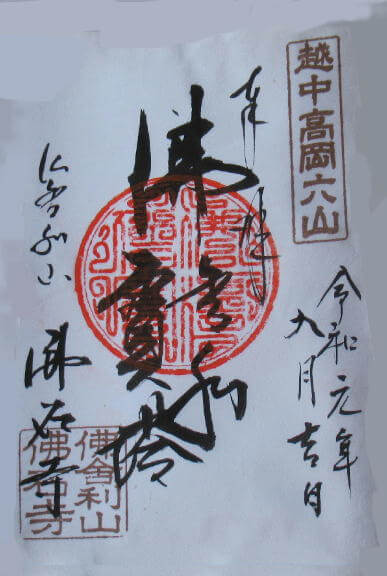 越中高岡六山
令和元年
九月吉日
奉拝
佛舎利
寶塔
仏舎利山
佛石寺
佛舎利山
佛石寺